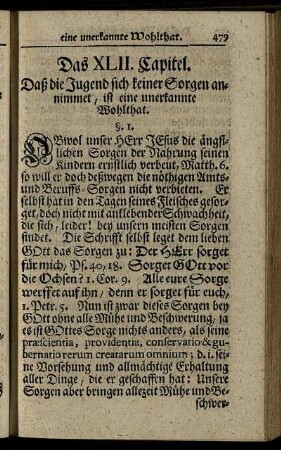 eine unerkannte Wohlthat. 479
Das XLII. Capitel.
Daß die Jugend sich keiner Sorgen an-
nimmet, ist eine unerkannte
Wohlthat.
§. 1.
OBwol unser HErr JEsus die ängst-
lichen Sorgen der Nahrung seinen
Kindern ernstlich verbeut, Matth. 6.
so will er doch deßwegen die nöthigen Amts-
und Beruffs-Sorgen nicht verbieten. Er
selbst hat in den Tagen seines Fleisches gesor-
get, doch nicht mit anklebender Schwachheit,
die sich, leider! bey unsern meisten Sorgen
findet. Die Schrifft selbst leget dem lieben
GOtt das Sorgen zu: Der HErr sorget
für mich, Ps. 40, 18. Sorget GOtt vor
die Ochsen? 1. Cor. 9. Alle eure Sorge
werffet auf ihn, denn er sorget für euch,
1. Petr. 5. Nun ist zwar dieses Sorgen bey
GOtt ohne alle Mühe und Beschwerung, ja
es ist GOttes Sorge nichts anders, als seine
præscientia, providentia, conservatio & gu-
bernatio rerum creatarum omnium; d. i. sei-
ne Vorsehung und allmächtige Erhaltung
aller Dinge, die er geschaffen hat: Unsere
Sorgen aber bringen allezeit Mühe und Be-
schwer-